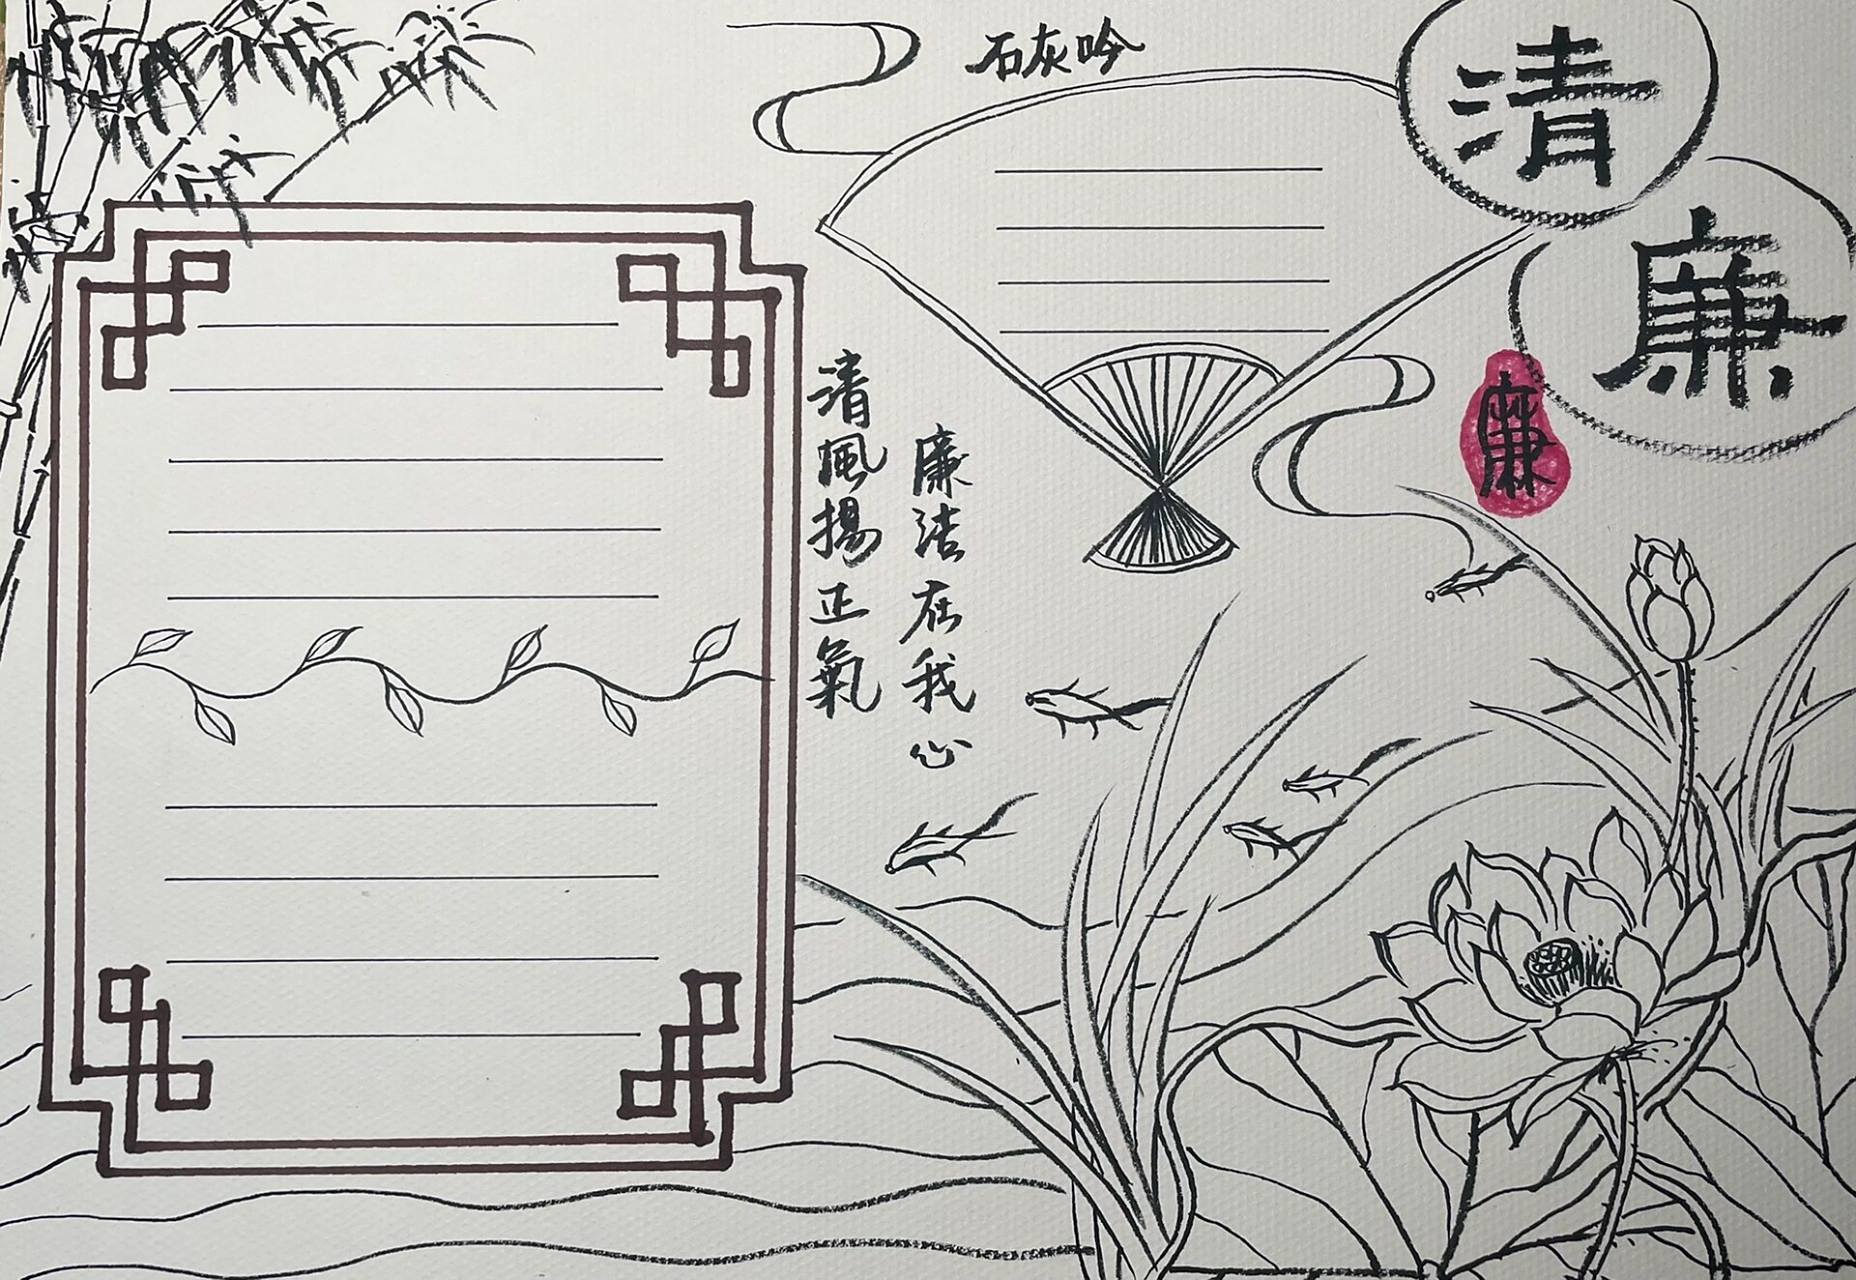 石灰吟
清
廉
廉
廉洁在我心
清風揚正氣